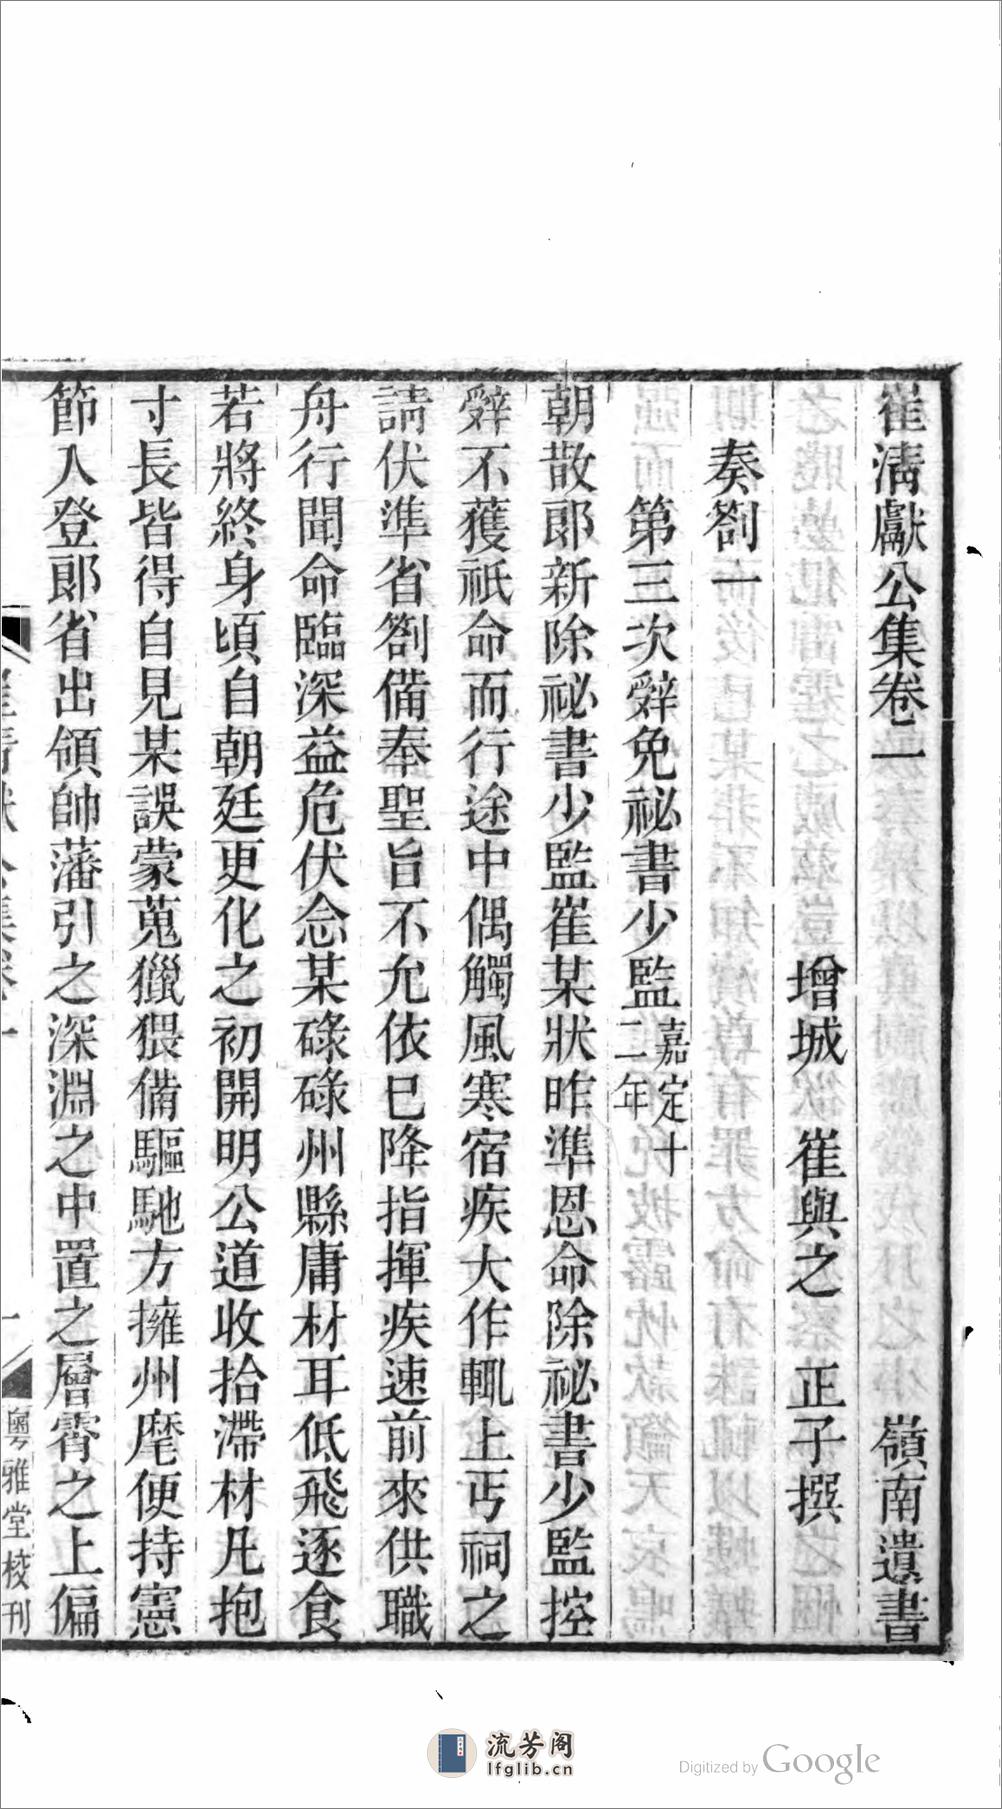 崔清獻公集卷一　嶺南遺書
增城　崔與之　正子撰
奏劄一
第三次辭免祕書少監嘉定十二年
朝散郎新除祕書少監崔某狀昨準恩命除祕書少監控
辭不獲祇命而行途中偶觸風寒宿疾大作輒上丐祠之
請伏準省劄備奉聖旨不允依已降指揮疾速前來供職
舟行聞命臨深益危伏念某碌碌州縣庸材耳低飛逐食
若將終身頃自朝廷更化之初開明公道收拾滯材凡抱
寸長皆得自見某誤蒙蒐獵猥備驅馳方擁州麾便持憲
節入登郎省出領帥藩引之深淵之中置之層霄之上偏
粵雅堂校刊
流芳阁
lfglib.cn
Digitized by Google